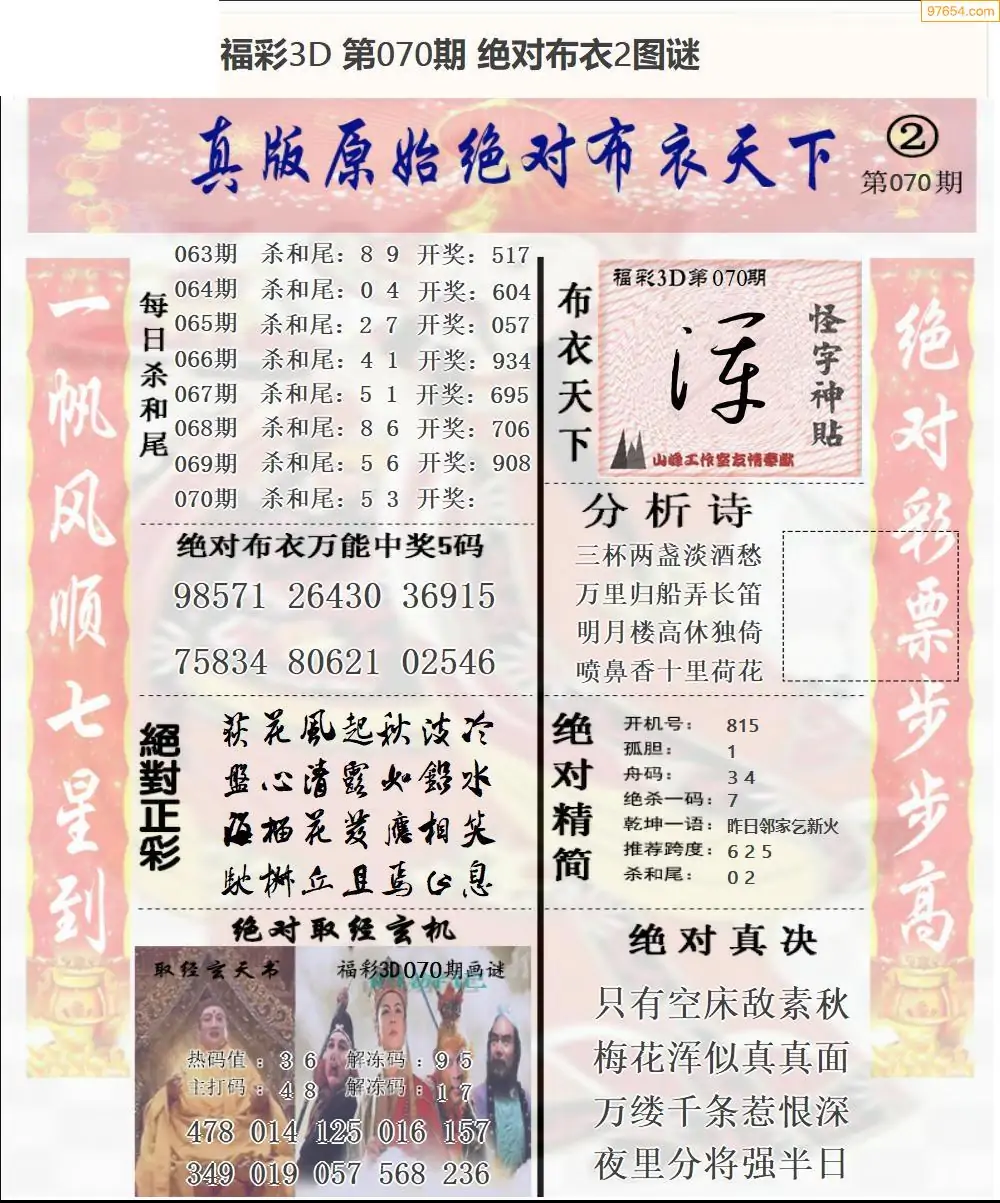 97654.com
福彩3D 第070期 绝对布衣2图谜
真版原始绝对布衣天下
②
第070期
一帆风顺七星到
每日杀和尾
063期 杀和尾：8 9 开奖：517
064期 杀和尾：0 4 开奖：604
065期 杀和尾：2 7 开奖：057
066期 杀和尾：4 1 开奖：934
067期 杀和尾：5 1 开奖：695
068期 杀和尾：8 6 开奖：706
069期 杀和尾：5 6 开奖：908
070期 杀和尾：5 3 开奖：
绝对布衣万能中奖5码
98571 26430 36915
75834 80621 02546
絕對正彩
荻花風起秋波冷
盤心清露如鉛水
海榴花发應相笑
取经玄机
绝对取经玄机
取经玄天书
福彩3D070期画谜
热码值：3 6 解冻码：9 5
主打码：4 8 解冻码：1 7
478 014 125 016 157
349 019 057 568 236
布衣天下
福彩3D第070期
怪字神貼
山峰工作室友情奉献
分析诗
三杯两盏淡酒愁
万里归船弄长笛
明月楼高休独倚
喷鼻香十里荷花
绝对精简
开机号：815
孤胆：1
舟码：3 4
绝杀一码：7
乾坤一语：昨日邻家乞新火
推荐跨度：6 2 5
杀和尾：0 2
绝对真决
只有空床敌素秋
梅花浑似真真面
万缕千条惹恨深
夜里分将强半日
绝对彩票步步高